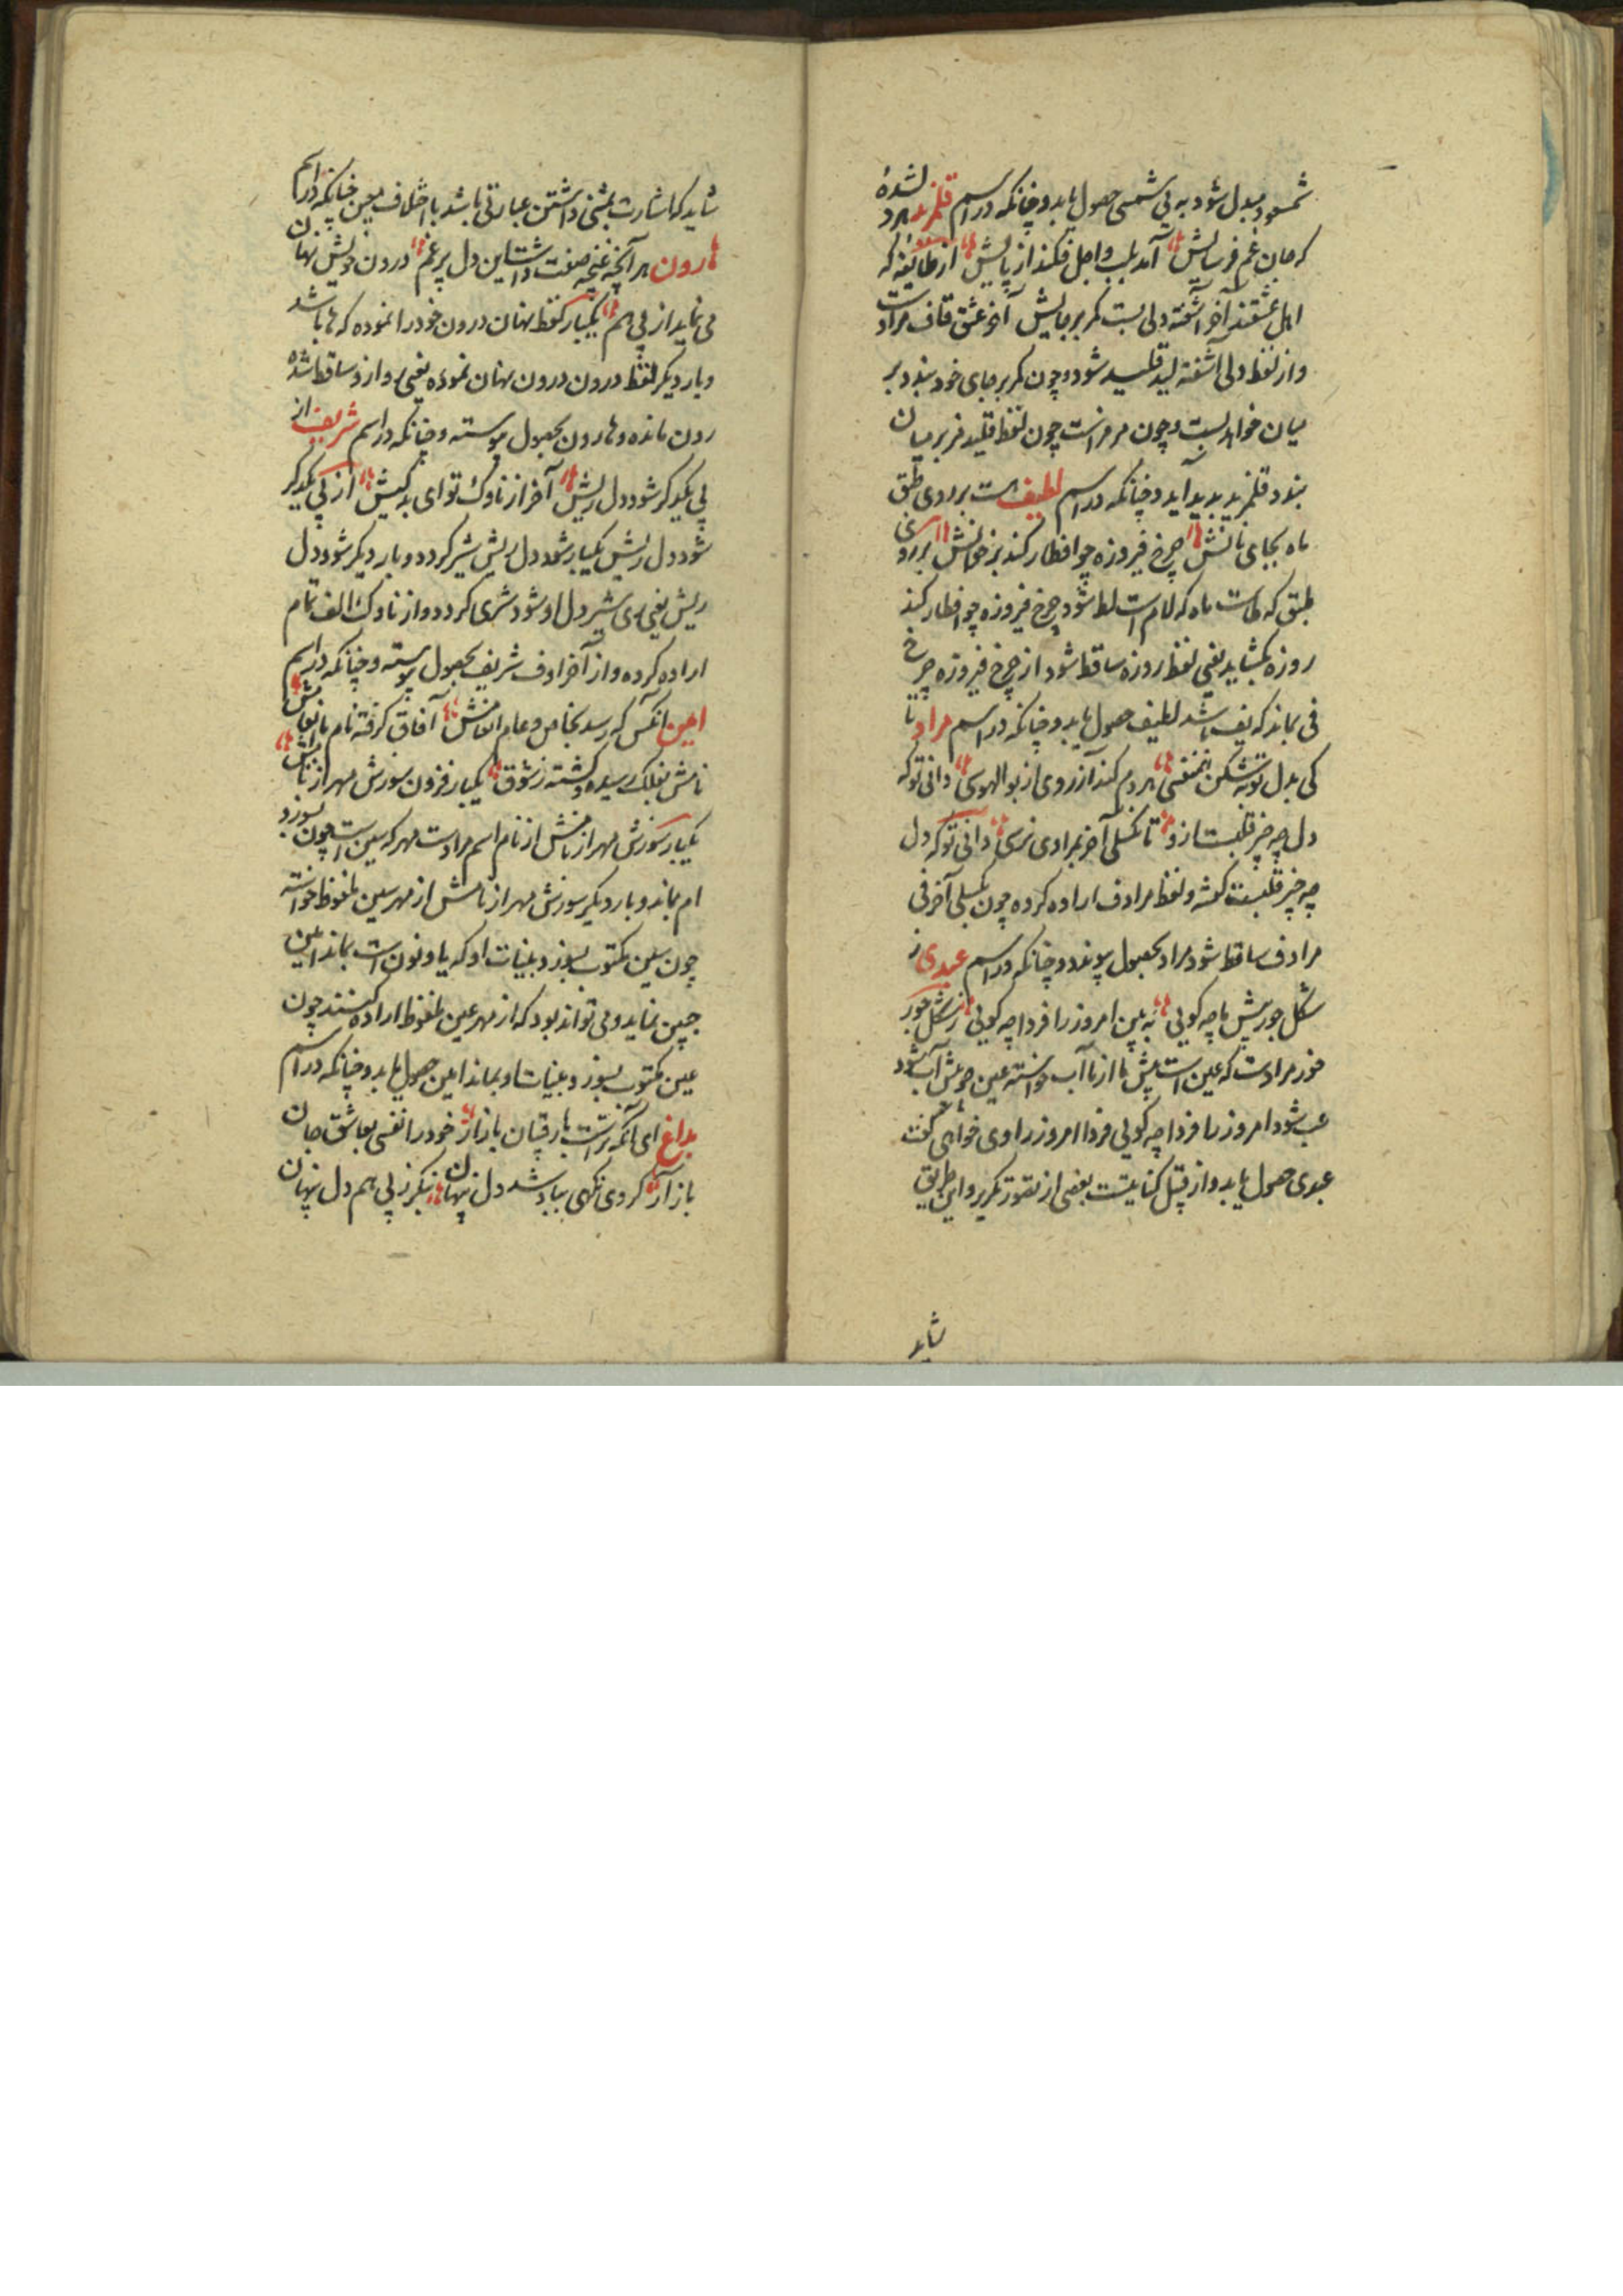 شمسود مبدل شود به بی شمسی حصول یابد و چنانکه در اسم قلمزید هر دلشدهٔ
که جان غم فرسایش آمد بلب و اجل فکند از پایش از طایفهٔ که
اهل عشقند آخر آشفته دلی بست کمر بر جایش آخر عشق قاف مرادست
و از لفظ دلی آشفته لید قلید شود و چون کمر بر جای خود بندد بر
میان خواهد بست و چون مرمزاست چون لفظ قلید مز بر میان
بندد قلمزید پدید آید و چنانکه در اسم لطیف است بر روی طبق
ماه بجای نانش چرخ فیروزه چو افطار کند بر خوانش بر روی
طبق که طاست ماه که لام است لط شود چرخ فیروزه چو افطار کند
روزه بگشاید یعنی لفظ روزه ساقط شود از چرخ فیروزه چرخ
فی بماند که یف باشد لطیف حصول یابد و چنانکه در اسم مراد تا
کی بدل توبه شکن همنفسی هر دم کند آرزوی از بوالهوسی دانی تو که
دل چه چیز قلبست ازو تا نگسلی آخر بمرادی نرسی دانی تو که دل
چه چیز قلبست گفته و لفظ مرادف اراده کرده چون بگسلی آخر فی
مرادف ساقط شود مراد بحصول پیوندد و چنانکه در اسم عبدی ز
شکل حورپیش ما چه گویی به بین امروز را فردا چه گویی از شکل حور
خور مرادست که عین است پیش ما از ما آب خواسته عین چو پیش آب شود
عب شود امروز را فردا چه گویی فردا امروز را وی خواهی گفت
عبدی حصول یابد و از قبیل کنایتست بعضی از تصور تکریر و این طریق
شاید
شاید که اشارت بمثنی داشتن عبارتی باشد با اختلاف معین چنانکه در اسم
هارون هر آنچه غنچه صفت داشت این دل پر غم درون خویش نهان
می نماید از پی هم یکبار لفظ نهان درون خود را نموده که ها باشد
و بار دیگر لفظ درون درون نهان نموده یعنی و از و ساقط شده
رون مانده و هارون بحصول پیوسته و چنانکه در اسم شریف از
پی یکدگر شود دل ریش آخر از ناوک تو ای بدکیش از پی یکدگر
شود دل ریش یکبار شود دل ریش شیر گردد و بار دیگر شود دل
ریش یعنی ری شیر دل او شود شری گردد و از ناوک الف تمام
اراده کرده و از آخر او ف شریف بحصول پیوسته و چنانکه در اسم
امین آنکس که رسد بخاص و عام انعامش آفاق گرفته نام با انعامش
نامش بفلک رسیده گشته ز شوق یکبار فزون سوزش مهر از نامش
یکبار سوزش مهر از نامش از نام اسم مرادست مهر که سین است چون بسوزد
ام بماند و بار دیگر سوزش مهر از نامش از مهر سین ملفوظ خواسته
چون سین مکتوب بسوزد بینات او که یا و نون است بماند امین
چنین نماید و می تواند بود که از مهر عین ملفوظ اراده کنند چون
عین مکتوب بسوزد بینات او بماند امین حصول یابد و چنانکه در اسم
بداغ ای آنکه تراست با رقیبان بازار خود را نفسی بعاشق جان
باز آر گر وی نگهی بباد شد دل پنهان بنگر ز پی هم دل پنهان